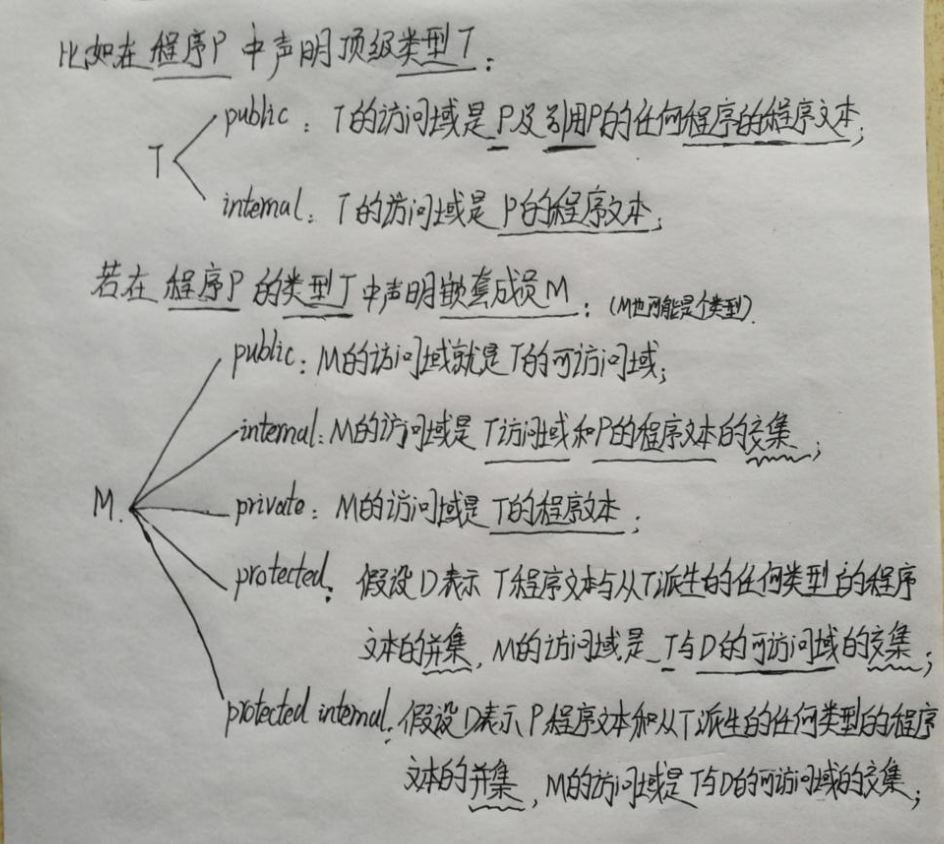 比如在程序P中声明顶级类型T:
T
public: T的访问域是P及引用P的任何程序的程序文本;
internal: T的访问域是P的程序文本;
若在程序P的类型T中声明嵌套成员M: (M也可能是个类型).
public: M的访问域就是T的可访问域;
internal: M的访问域是T访问域和P的程序文本的交集;
M.
private: M的访问域是T的程序文本;
protected: 假设D表示T程序文本与从T派生的任何类型的程序
文本的并集, M的访问域是T与D的可访问域的交集;
protected internal: 假设D表示P程序文本和从T派生的任何类型的程序
文本的并集, M的访问域是T与D的可访问域的交集;